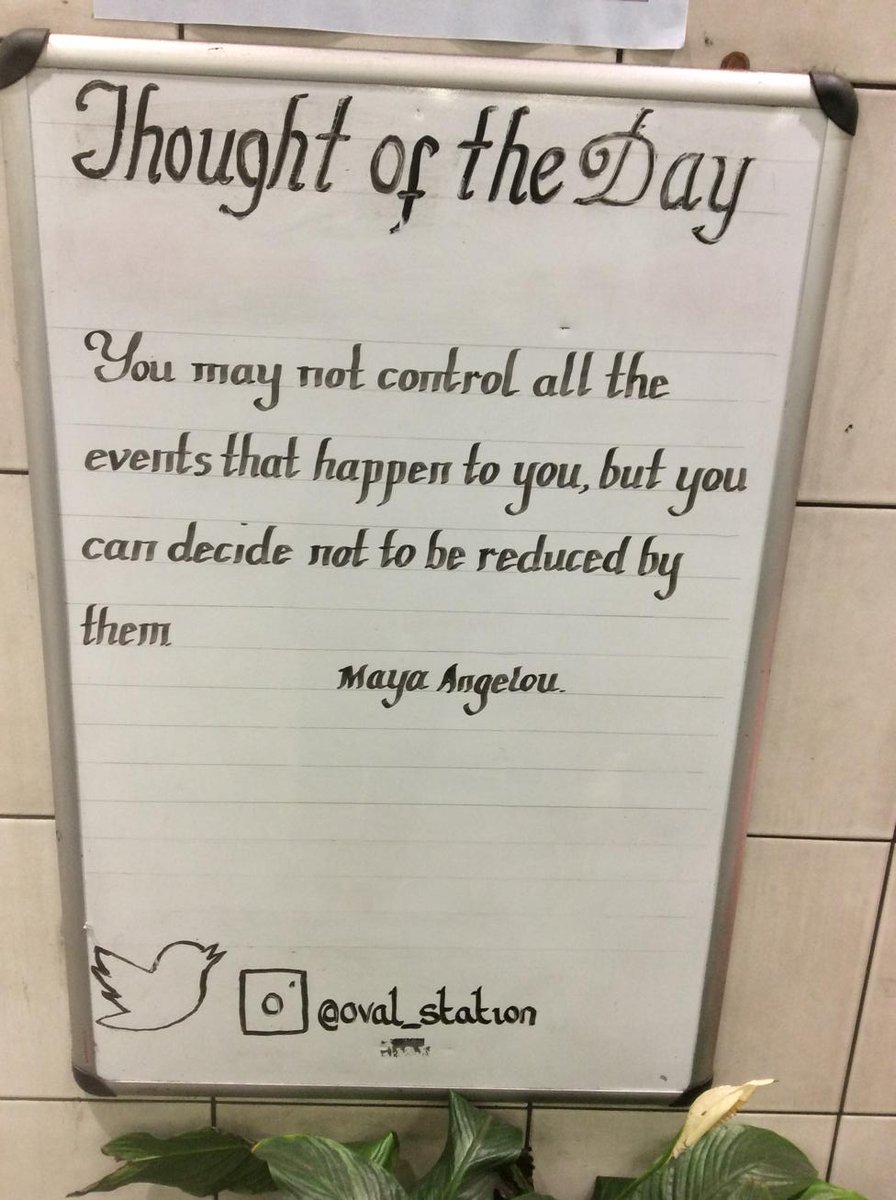 Thought of the Day
You may not control all the
events that happen to you, but you
can decide not to be reduced by
them
Maya Angelou.
@oval_station